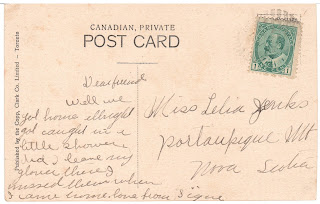 CANADIAN, PRIVATE
POST CARD
Published by the Copp, Clark Co. Limited – Toronto
Dear friend
Well we
got home allright
got caught in a
little shower
did I leave my
gloves there I
missed them when
I came home. love from
Miss Lelia Jenks
Portaupique Mt
Nova Scotia
1 1